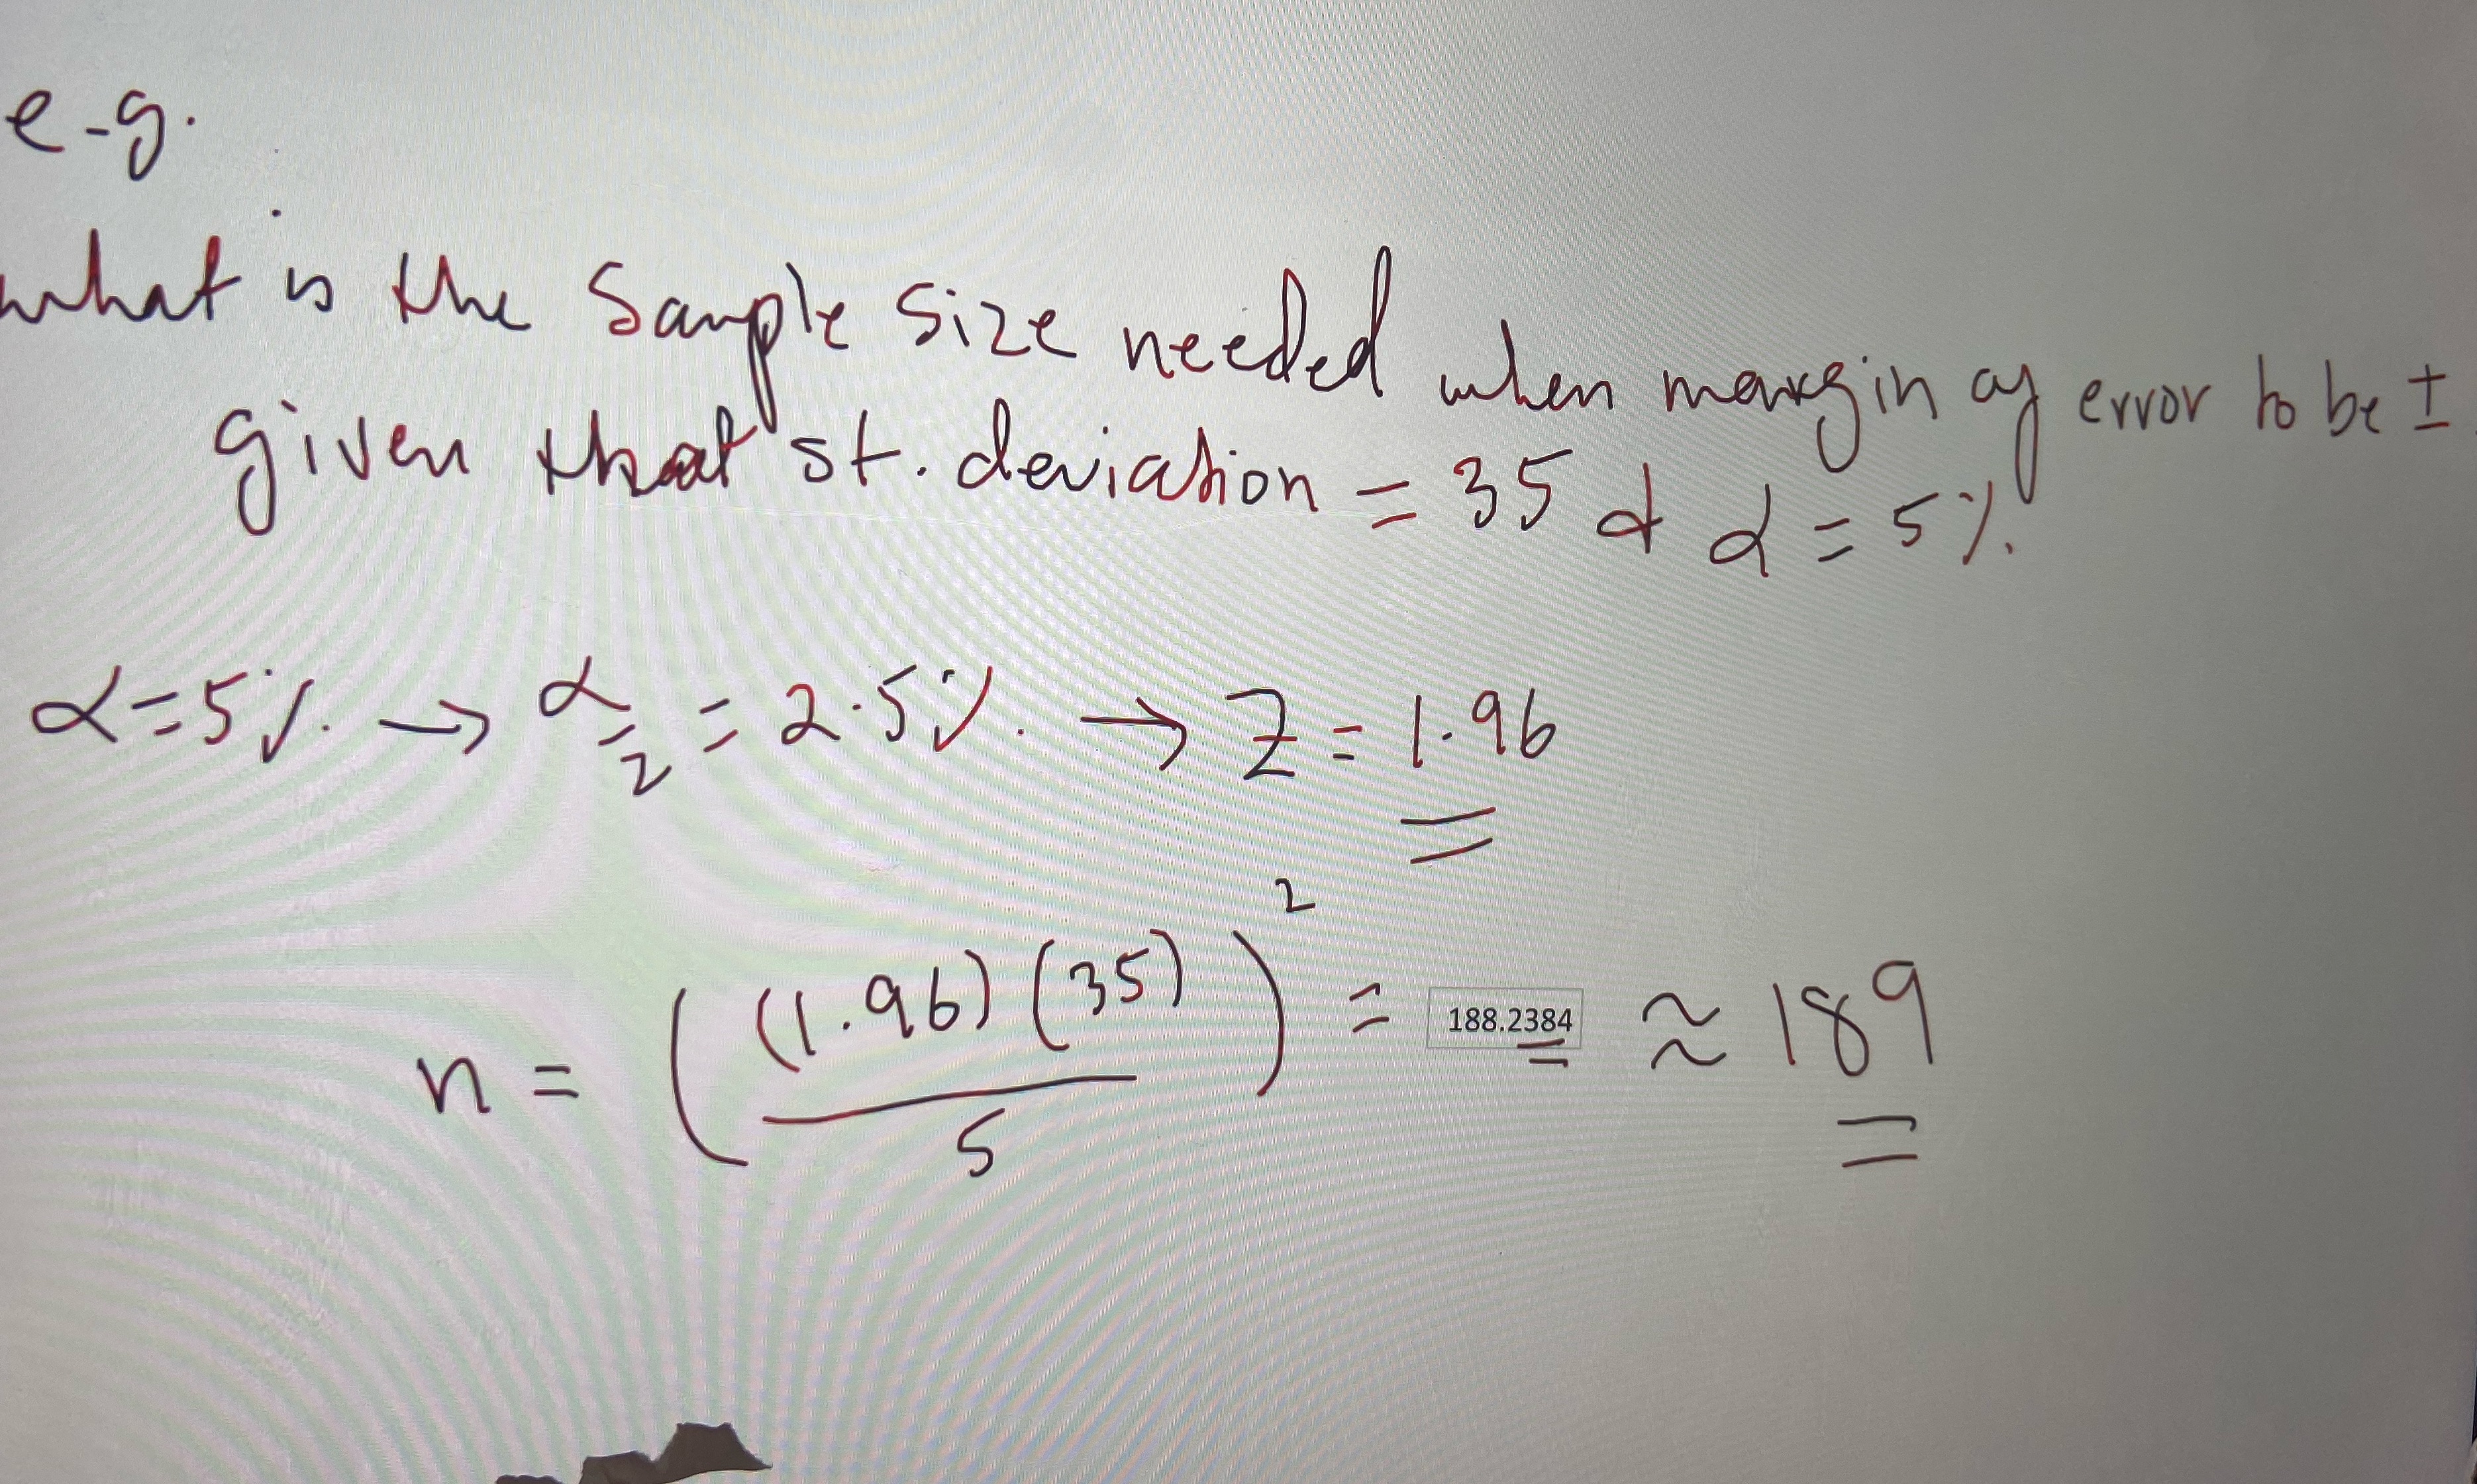 e-g.
what is the Sample Size needed when margin of error to be ±
given that st. deviation = 35 & α = 5%.
α=5% → α/2 = 2.5% → Z = 1.96
n = ((1.96)(35)/5)² = 188.2384 ≈ 189